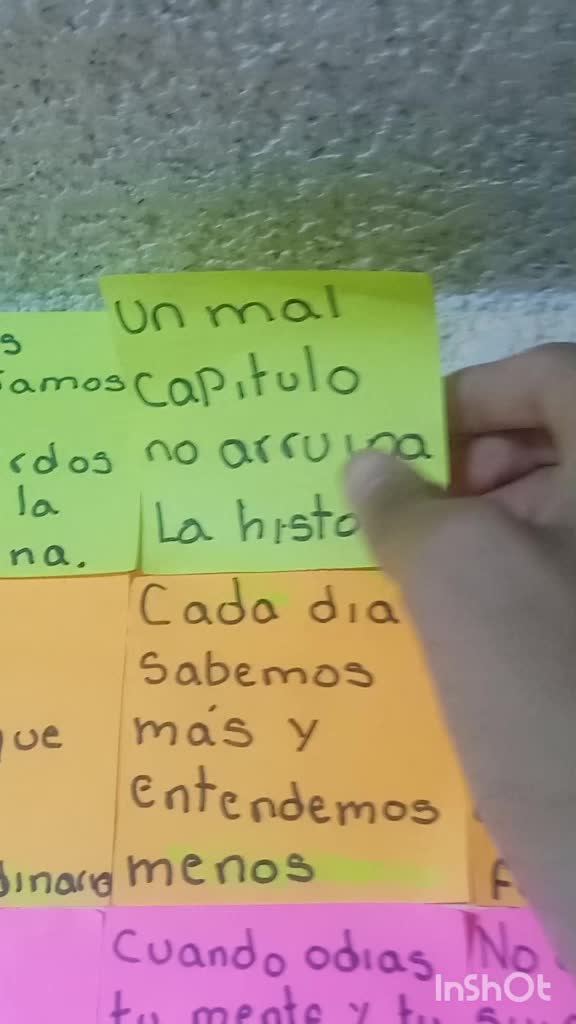 un mal
capitulo
no arruina
La histo
s
amos
rdos
la
na.
Cada dia
sabemos
más y
entendemos
menos
ue
dinario
Cuando odias
tu mente y tu
No
InShOt